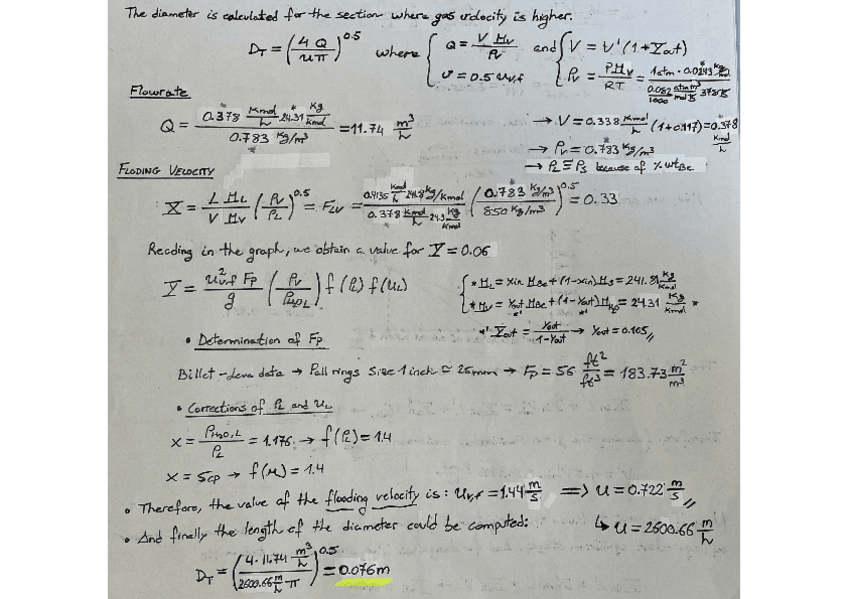 The diameter is calculated for the section where gas velocity is higher.
D_T = (4 Q / u π)^0.5 where { Q = V M_V / ρ_V and { V = V' (1 + Y_out)
v = 0.5 u_v,f
ρ_V = P M_V / R T = 1 atm · 0.0243 Kg/mol / 0.082/1000 atm m³/mol K
Flowrate
Q = 0.378 Kmol/h 24.31 Kg/Kmol / 0.783 Kg/m³ = 11.74 m³/h
→ V = 0.338 Kmol/h (1 + 0.117) = 0.378 Kmol/h
→ ρ_V = 0.783 Kg/m³
→ ρ_L ≡ ρ_S because of % wt_Be
FLODING VELOCITY
X = L M_L / V M_V (ρ_V / ρ_L)^0.5 = F_LV = 0.4135 Kmol/h 241.8 Kg/Kmol / 0.378 Kmol/h 24.3 Kg/Kmol (0.783 Kg/m³ / 850 Kg/m³)^0.5 = 0.33
Reading in the graph, we obtain a value for Y = 0.06
Y = u²_v,f F_P / g (ρ_V / ρ_H2O,L) f(ρ_L) f(u_L)
{ * M_L = x_in M_Be + (1 - x_in) M_S = 241.81 Kg/Kmol
* M_V = Y_out M_Be + (1 - Y_out) = 24.31 Kg/Kmol *
*' Y_out = Y_out / 1 - Y_out → Y_out = 0.105 //
• Determination of F_P
data → Pall rings Size 1 inch ≃ 25mm → F_P = 56 ft²/ft³ = 183.73 m²/m³
• Corrections of ρ_L and u_L
x = ρ_H2O,L / ρ_L = 1.176 → f(ρ_L) = 1.4
x = 5cp → f(u) = 1.4
• Therefore, the value of the flooding velocity is: u_v,f = 1.44 m/s => u = 0.722 m/s //
• And finally the length of the diameter could be computed:
↳ u = 2600.66 m/h
D_T = (4 · 11.74 m³/h / 2600.66 m/h π)^0.5 = 0.076m